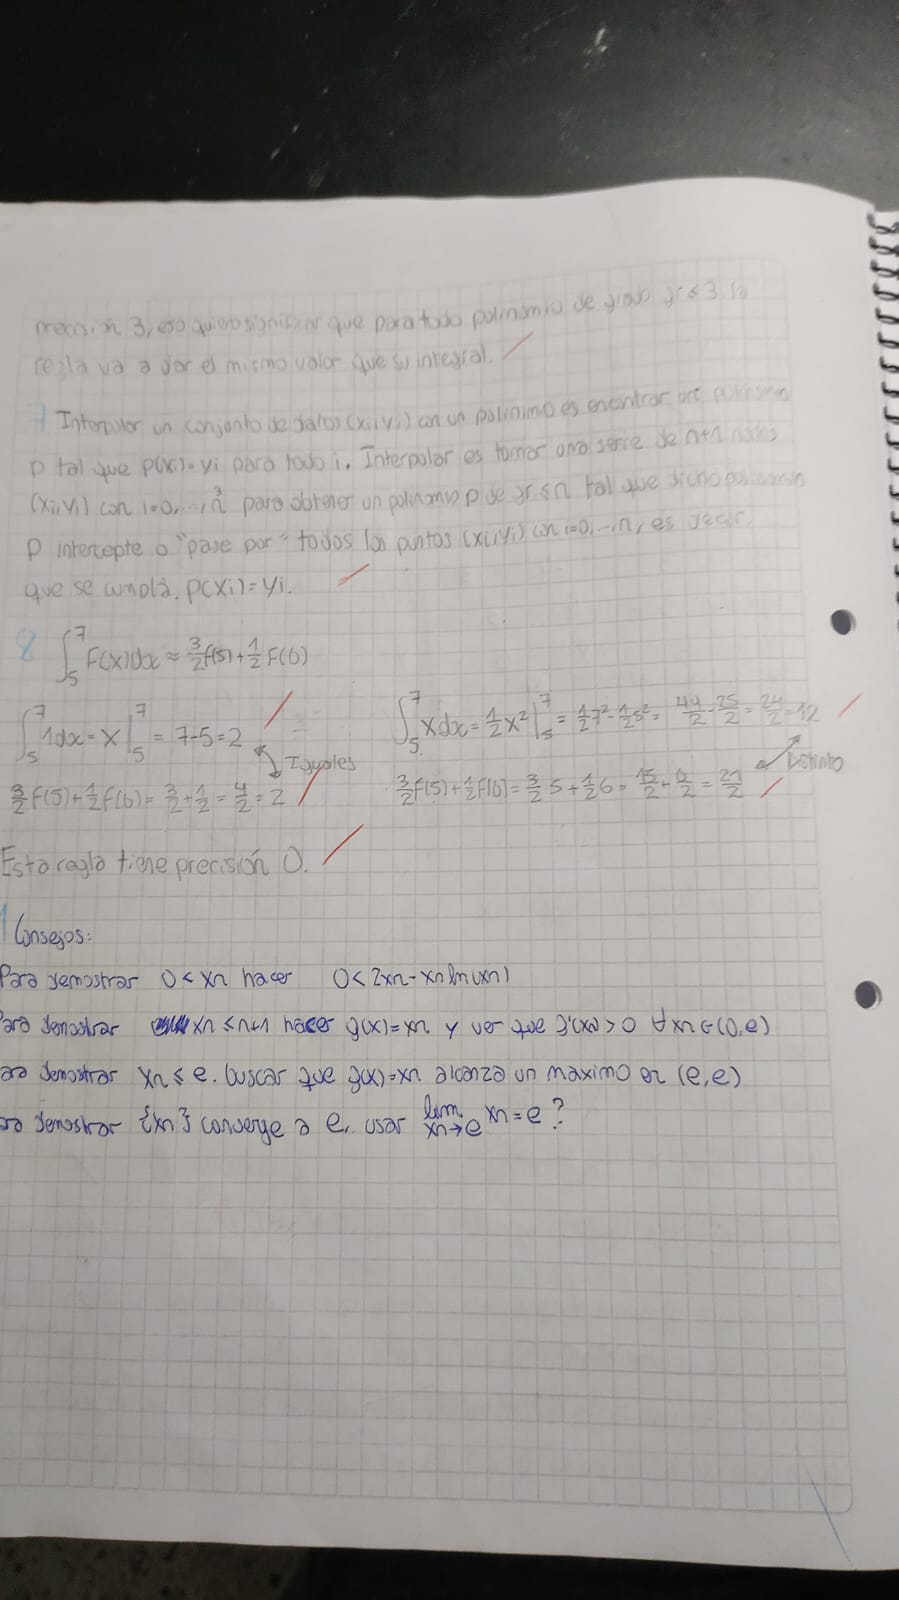 precisión 3, eso quiere significar que para todo polinomio de grado gr ≤ 3 la
regla va a dar el mismo valor que su integral.
7 Interpolar un conjunto de datos (xi, yi) con un polinimo es encontrar un polinomio
p tal que p(xi)=yi para todo i. Interpolar es tomar una serie de n+1 nodos
(xi, yi) con i=0,...,n para obtener un polinomio p de gr ≤ n tal que dicho polinomio
p intercepte o "pase por" todos los puntos (xi, yi) con i=0,...,n, es decir,
que se cumpla. p(xi)=yi.
8 ∫₅⁷ F(x)dx ≈ 3/2 f(5) + 1/2 F(6)
∫₅⁷ 1dx = x |₅⁷ = 7-5 = 2
Iguales
3/2 f(5) + 1/2 f(6) = 3/2 + 1/2 = 4/2 = 2
∫₅⁷ xdx = 1/2 x² |₅⁷ = 1/2 7² - 1/2 5² = 49/2 - 25/2 = 24/2 = 12
Distinto
3/2 f(5) + 1/2 f(6) = 3/2 5 + 1/2 6 = 15/2 + 6/2 = 21/2
Esta regla tiene precisión 0.
1 Consejos:
Para demostrar 0 < xn hacer 0 < 2xn - xn ln(xn)
ara demostrar xn ≤ n+1 hacer g(x)=xn y ver que g'(xn) > 0 ∀ xn ∈ (0,e)
ara demostrar xn ≤ e. buscar que g(x)=xn alcanza un maximo en (e,e)
ara demostrar {xn} converge a e, usar lim xn→e xn = e ?